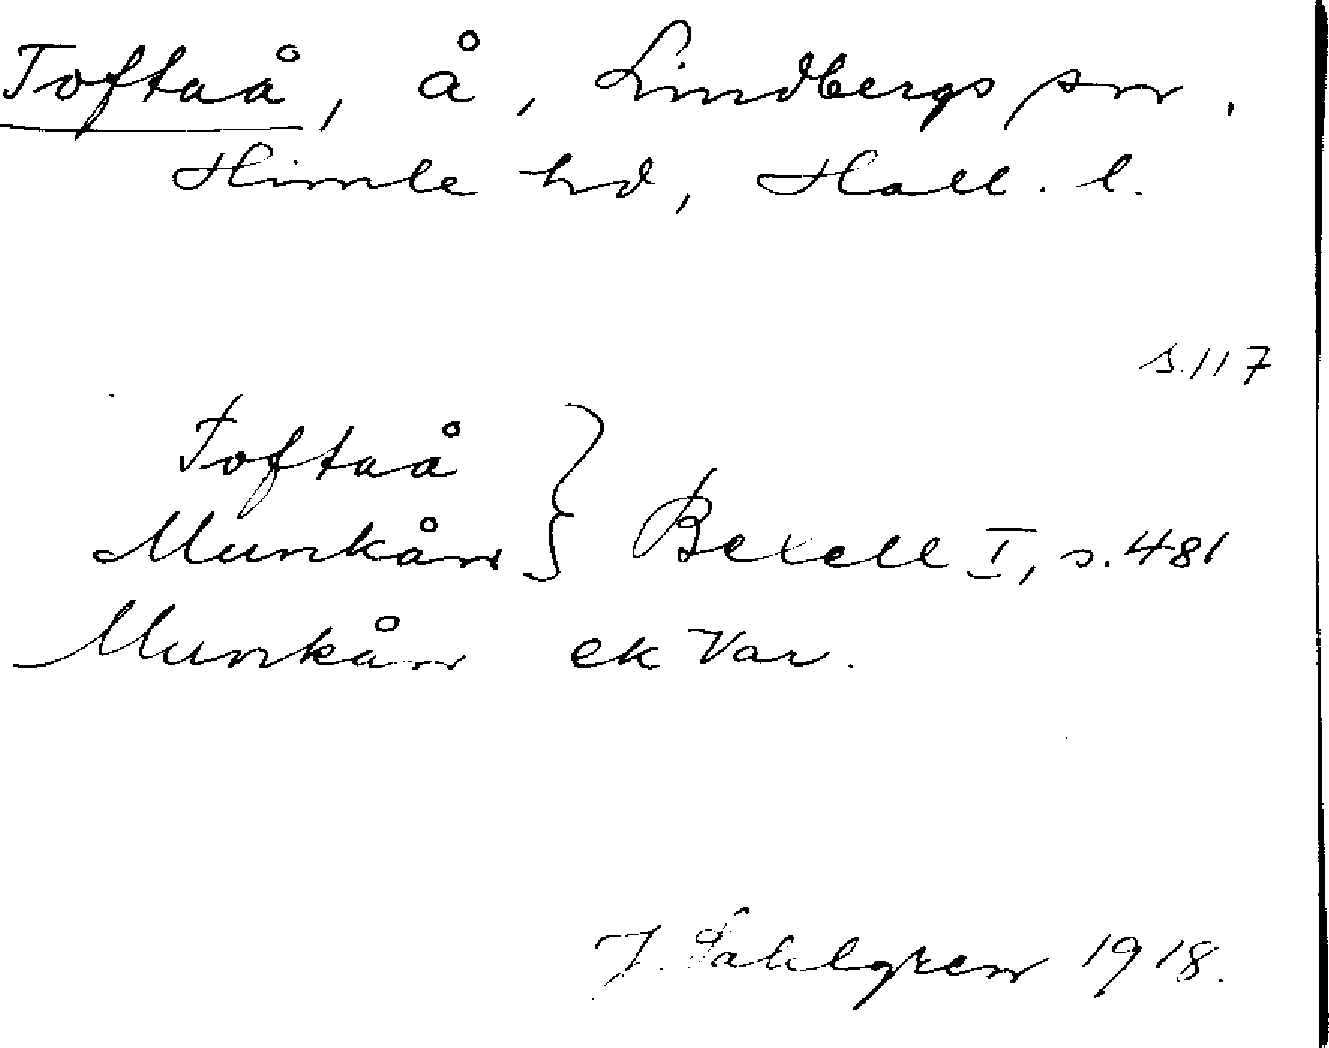 Toftaå, å, Lindbergs sn.
Himle hd, Hall. l.
s. 117
Toftaå
Munkån } Bexell I, s. 481
Munkån ek Var.
J. Sahlgren 1918.